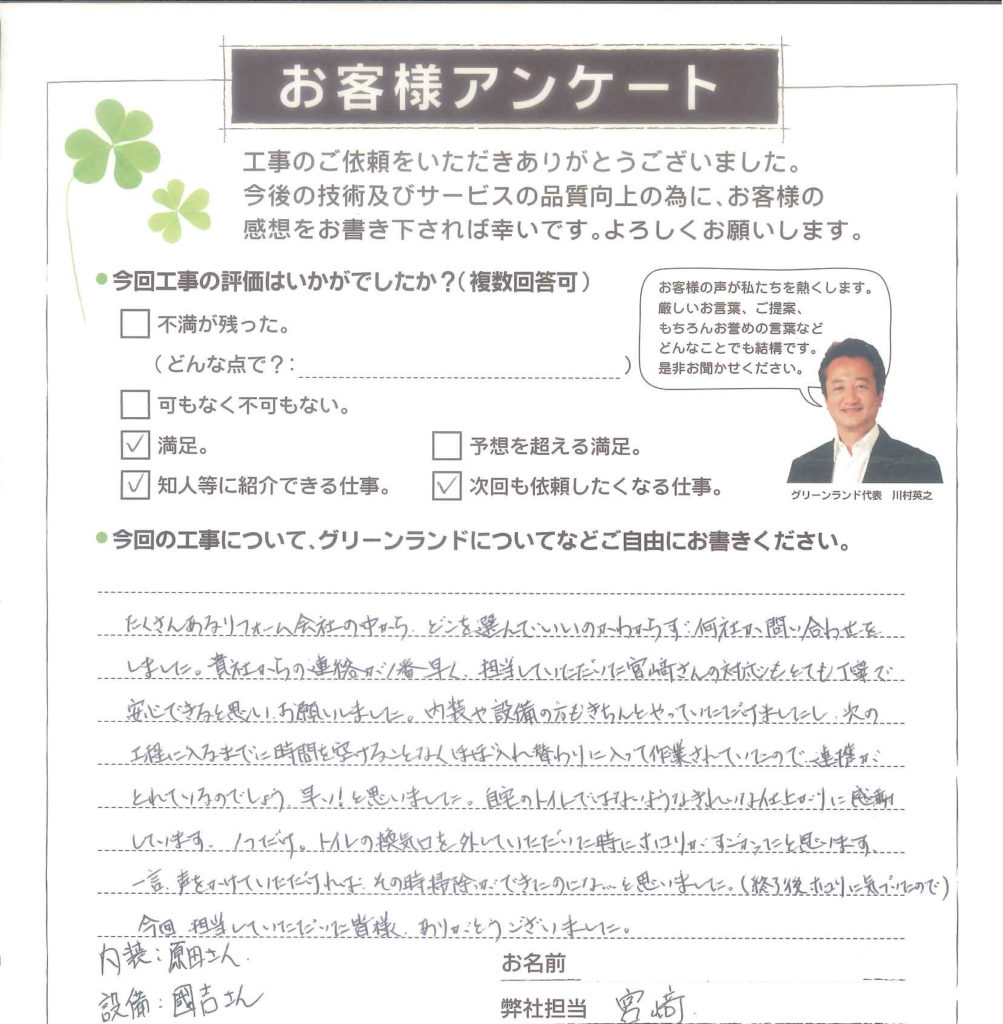 お客様アンケート
工事のご依頼をいただきありがとうございました。
今後の技術及びサービスの品質向上の為に、お客様の
感想をお書き下されば幸いです。よろしくお願いします。
今回工事の評価はいかがでしたか？（複数回答可）
お客様の声が私たちを熱くします。
厳しいお言葉、ご提案、
もちろんお誉めの言葉など
どんなことでも結構です。
是非お聞かせください。
不満が残った。
（どんな点で？：）
可もなく不可もない。
満足。
予想を超える満足。
知人等に紹介できる仕事。
次回も依頼したくなる仕事。
グリーンランド代表 川村英之
今回の工事について、グリーンランドについてなどご自由にお書きください。
たくさんあるリフォーム会社の中から、どこを選んでいいのかわからず、何社か問い合わせを
しました。貴社からの連絡が1番早く、担当していただいた宮﨑さんの対応もとても丁寧で
安心できると思い、お願いしました。内装や設備の方もきちんとやっていただけましたし、次の
工程に入るまでに時間を空けることなくほぼ入れ替わりに入って作業されていたので、連携が
とれているのでしょう、早い！と思いました。自宅のトイレではないようなきれいな仕上がりに感動
しています。1つだけ。トイレの換気口を外していただいた時にホコリがすごかったと思います。
一言、声をかけていただければ、その時掃除ができたのにな…と思いました。（終了後ホコリに気づいたので）
今回、担当していただいた皆様、ありがとうございました。
内装：原田さん
お名前
設備：國吉さん
弊社担当 宮﨑